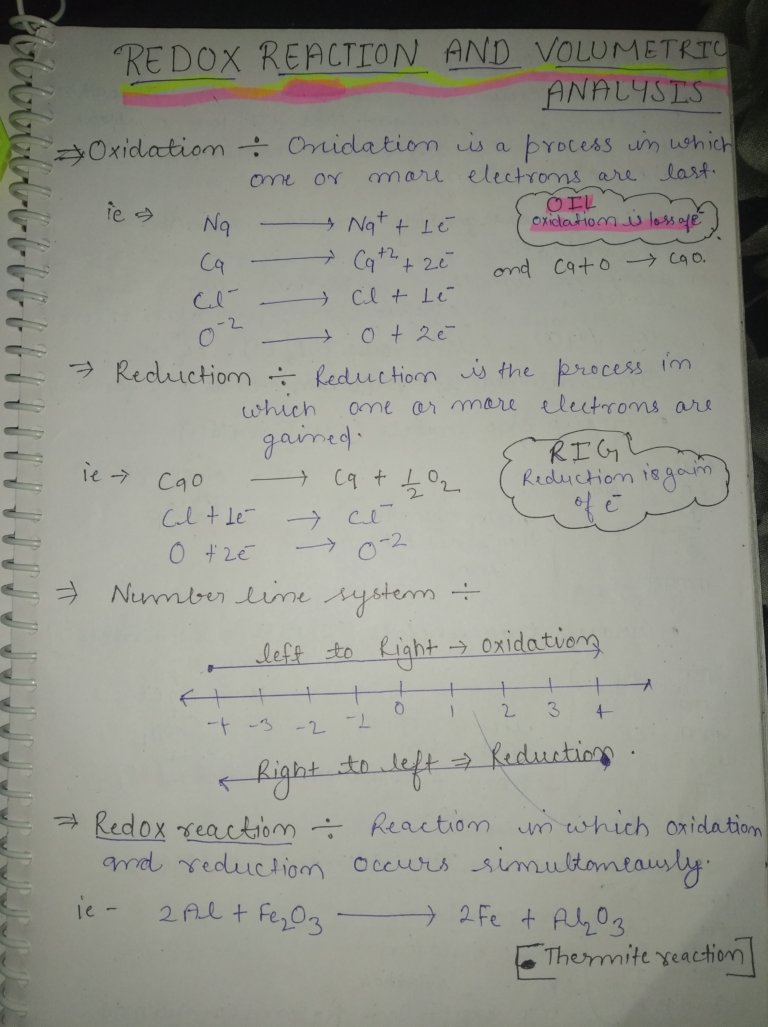 REDOX REACTION AND VOLUMETRIC
ANALYSIS
⇒ Oxidation ÷ Oxidation is a process in which
one or more electrons are last.
ie ⇒ Na ⟶ Na⁺ + 1e⁻
OIL
oxidation is loss of e⁻
Ca ⟶ Ca⁺² + 2e⁻ and Ca+O → CaO.
Cl⁻ ⟶ Cl + 1e⁻
O⁻² ⟶ O + 2e⁻
⇒ Reduction ÷ Reduction is the process in
which one or more electrons are
gained.
RIG
Reduction is gain
of e⁻
ie → CaO ⟶ Ca + 1/2 O₂
Cl + 1e⁻ → Cl⁻
O + 2e⁻ → O⁻²
⇒ Number line system ÷
left to Right → oxidation
-4 -3 -2 -1 0 1 2 3 4
Right to left ⇒ Reduction.
⇒ Redox reaction ÷ Reaction in which oxidation
and reduction occurs simultaneously.
ie - 2Al + Fe₂O₃ ⟶ 2Fe + Al₂O₃
[Thermite reaction]